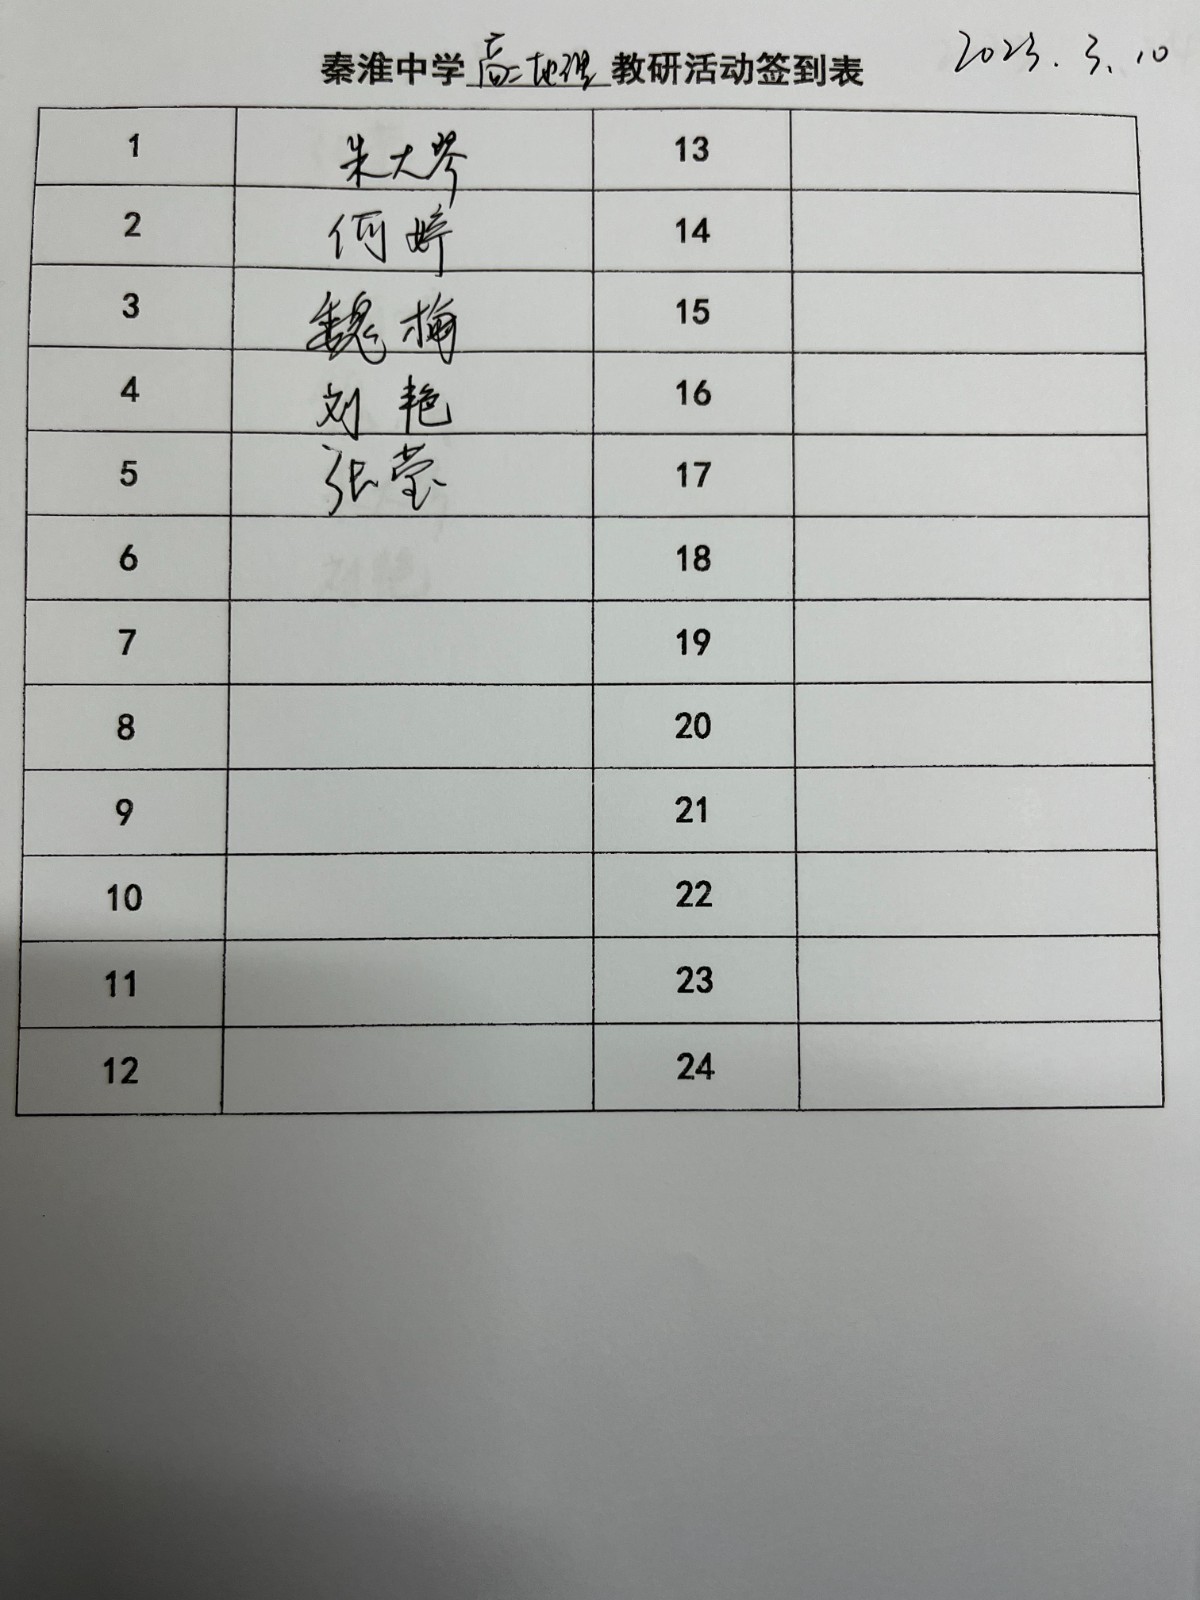 秦淮中学高二地理教研活动签到表
2023.3.10
1 朱大琴 13
2 何婷 14
3 魏梅 15
4 刘艳 16
5 张莹 17
6 18
7 19
8 20
9 21
10 22
11 23
12 24